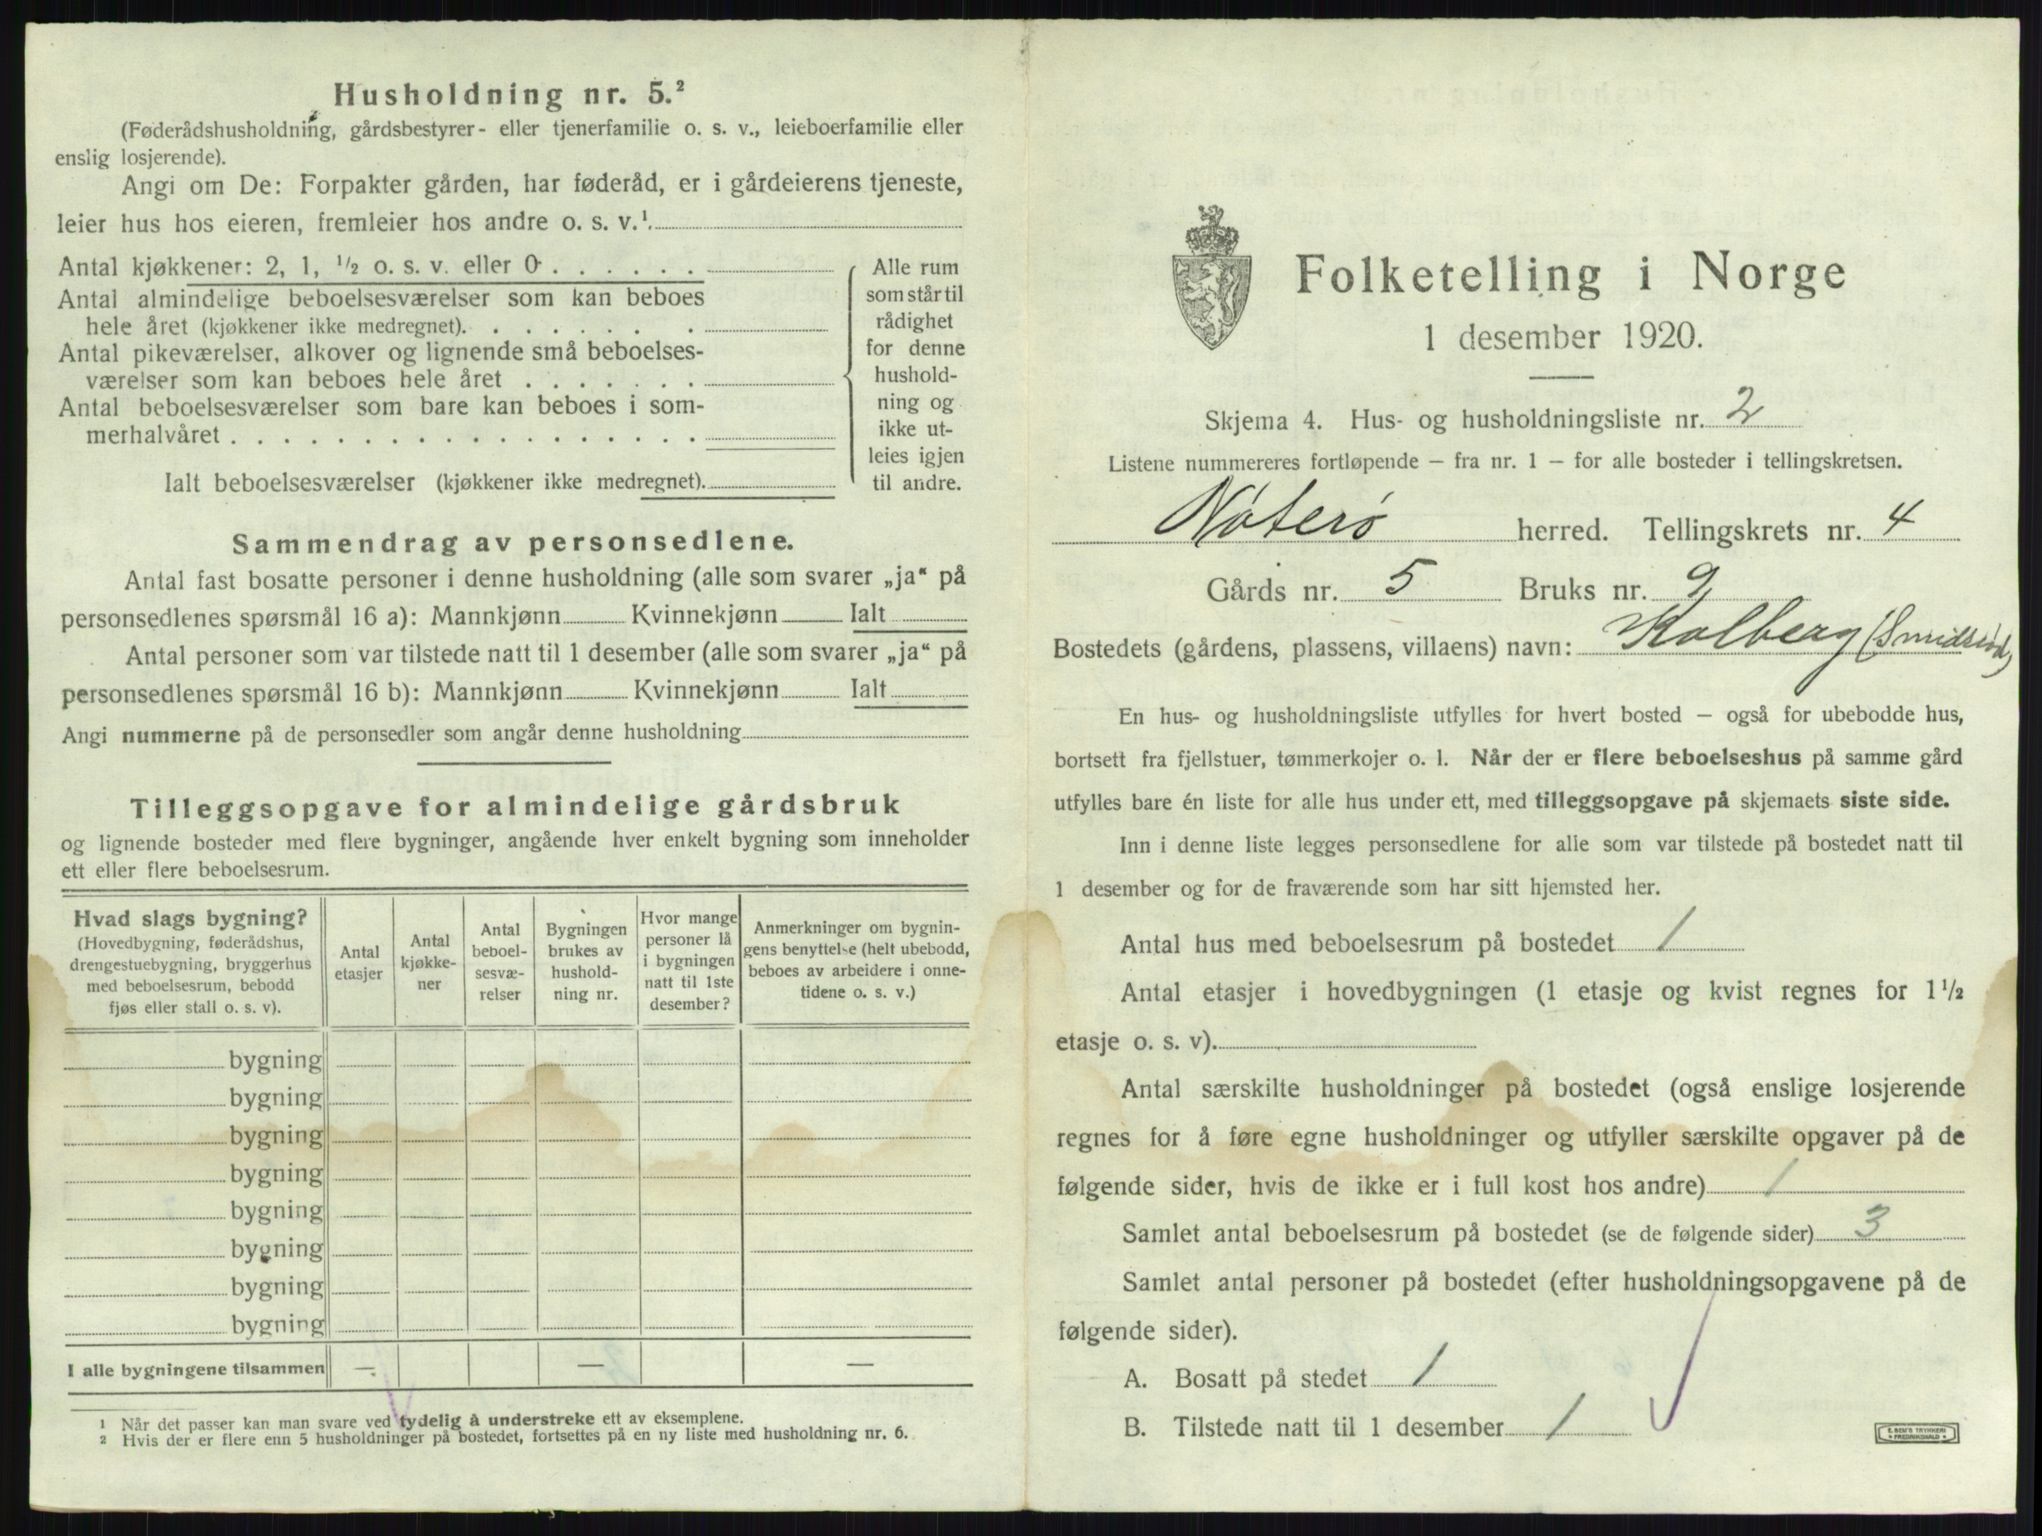 Husholdning nr. 5.²
(Føderådshusholdning, gårdsbestyrer- eller tjenerfamilie o. s. v., leieboerfamilie eller
enslig losjerende).
Angi om De: Forpakter gården, har føderåd, er i gårdeierens tjeneste,
leier hus hos eieren, fremleier hos andre o. s. v.¹.
Antal kjøkkener: 2, 1, ½ o. s. v. eller 0 . . . . . .
Antal almindelige beboelsesværelser som kan beboes
hele året (kjøkkener ikke medregnet). . . . . . . .
Antal pikeværelser, alkover og lignende små beboelses-
værelser som kan beboes hele året . . . . . . .
Antal beboelsesværelser som bare kan beboes i som-
merhalvåret . . . . . . . . . . . . . . . . . .
Ialt beboelsesværelser (kjøkkener ikke medregnet).
Alle rum
som står til
rådighet
for denne
hushold-
ning og
ikke ut-
leies igjen
til andre.
Sammendrag av personsedlene.
Antal fast bosatte personer i denne husholdning (alle som svarer „ja“ på
personsedlenes spørsmål 16 a): Mannkjønn Kvinnekjønn Ialt
Antal personer som var tilstede natt til 1 desember (alle som svarer „ja“ på
personsedlenes spørsmål 16 b): Mannkjønn Kvinnekjønn Ialt
Angi nummerne på de personsedler som angår denne husholdning
Tilleggsopgave for almindelige gårdsbruk
og lignende bosteder med flere bygninger, angående hver enkelt bygning som inneholder
ett eller flere beboelsesrum.
Hvad slags bygning?
(Hovedbygning, føderådshus,
drengestuebygning, bryggerhus
med beboelsesrum, bebodd
fjøs eller stall o. s. v).
Antal
etasjer
Antal
kjøkke-
ner
Antal
beboel-
sesvæ-
relser
Bygningen
brukes av
hushold-
ning nr.
Hvor mange
personer lå
i bygningen
natt til 1ste
desember?
Anmerkninger om bygnin-
gens benyttelse (helt ubebodd,
beboes av arbeidere i onne-
tidene o. s. v.)
bygning
bygning
bygning
bygning
bygning
bygning
bygning
bygning
I alle bygningene tilsammen — — —
¹ Når det passer kan man svare ved tydelig å understreke ett av eksemplene.
² Hvis der er flere enn 5 husholdninger på bostedet, fortsettes på en ny liste med husholdning nr. 6.
Folketelling i Norge
1 desember 1920.
Skjema 4. Hus- og husholdningsliste nr. 2
Listene nummereres fortløpende – fra nr. 1 – for alle bosteder i tellingskretsen.
Nøterø herred. Tellingskrets nr. 4
Gårds nr. 5 Bruks nr. 9
Bostedets (gårdens, plassens, villaens) navn: Kolberg (Smidsrød)
En hus- og husholdningsliste utfylles for hvert bosted – også for ubebodde hus,
bortsett fra fjellstuer, tømmerkojer o. l. Når der er flere beboelseshus på samme gård
utfylles bare én liste for alle hus under ett, med tilleggsopgave på skjemaets siste side.
Inn i denne liste legges personsedlene for alle som var tilstede på bostedet natt til
1 desember og for de fraværende som har sitt hjemsted her.
Antal hus med beboelsesrum på bostedet 1
Antal etasjer i hovedbygningen (1 etasje og kvist regnes for 1½
etasje o. s. v).
Antal særskilte husholdninger på bostedet (også enslige losjerende
regnes for å føre egne husholdninger og utfyller særskilte opgaver på de
følgende sider, hvis de ikke er i full kost hos andre) 1
Samlet antal beboelsesrum på bostedet (se de følgende sider) 3
Samlet antal personer på bostedet (efter husholdningsopgavene på de
følgende sider).
A. Bosatt på stedet 1
B. Tilstede natt til 1 desember 1
E. SEM'S TRYKKERI
FREDRIKSHALD